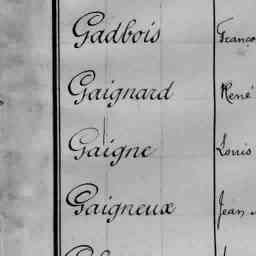 Gadbois Franço
Gaignard René
Gaigne Louis
Gaigneux Jean